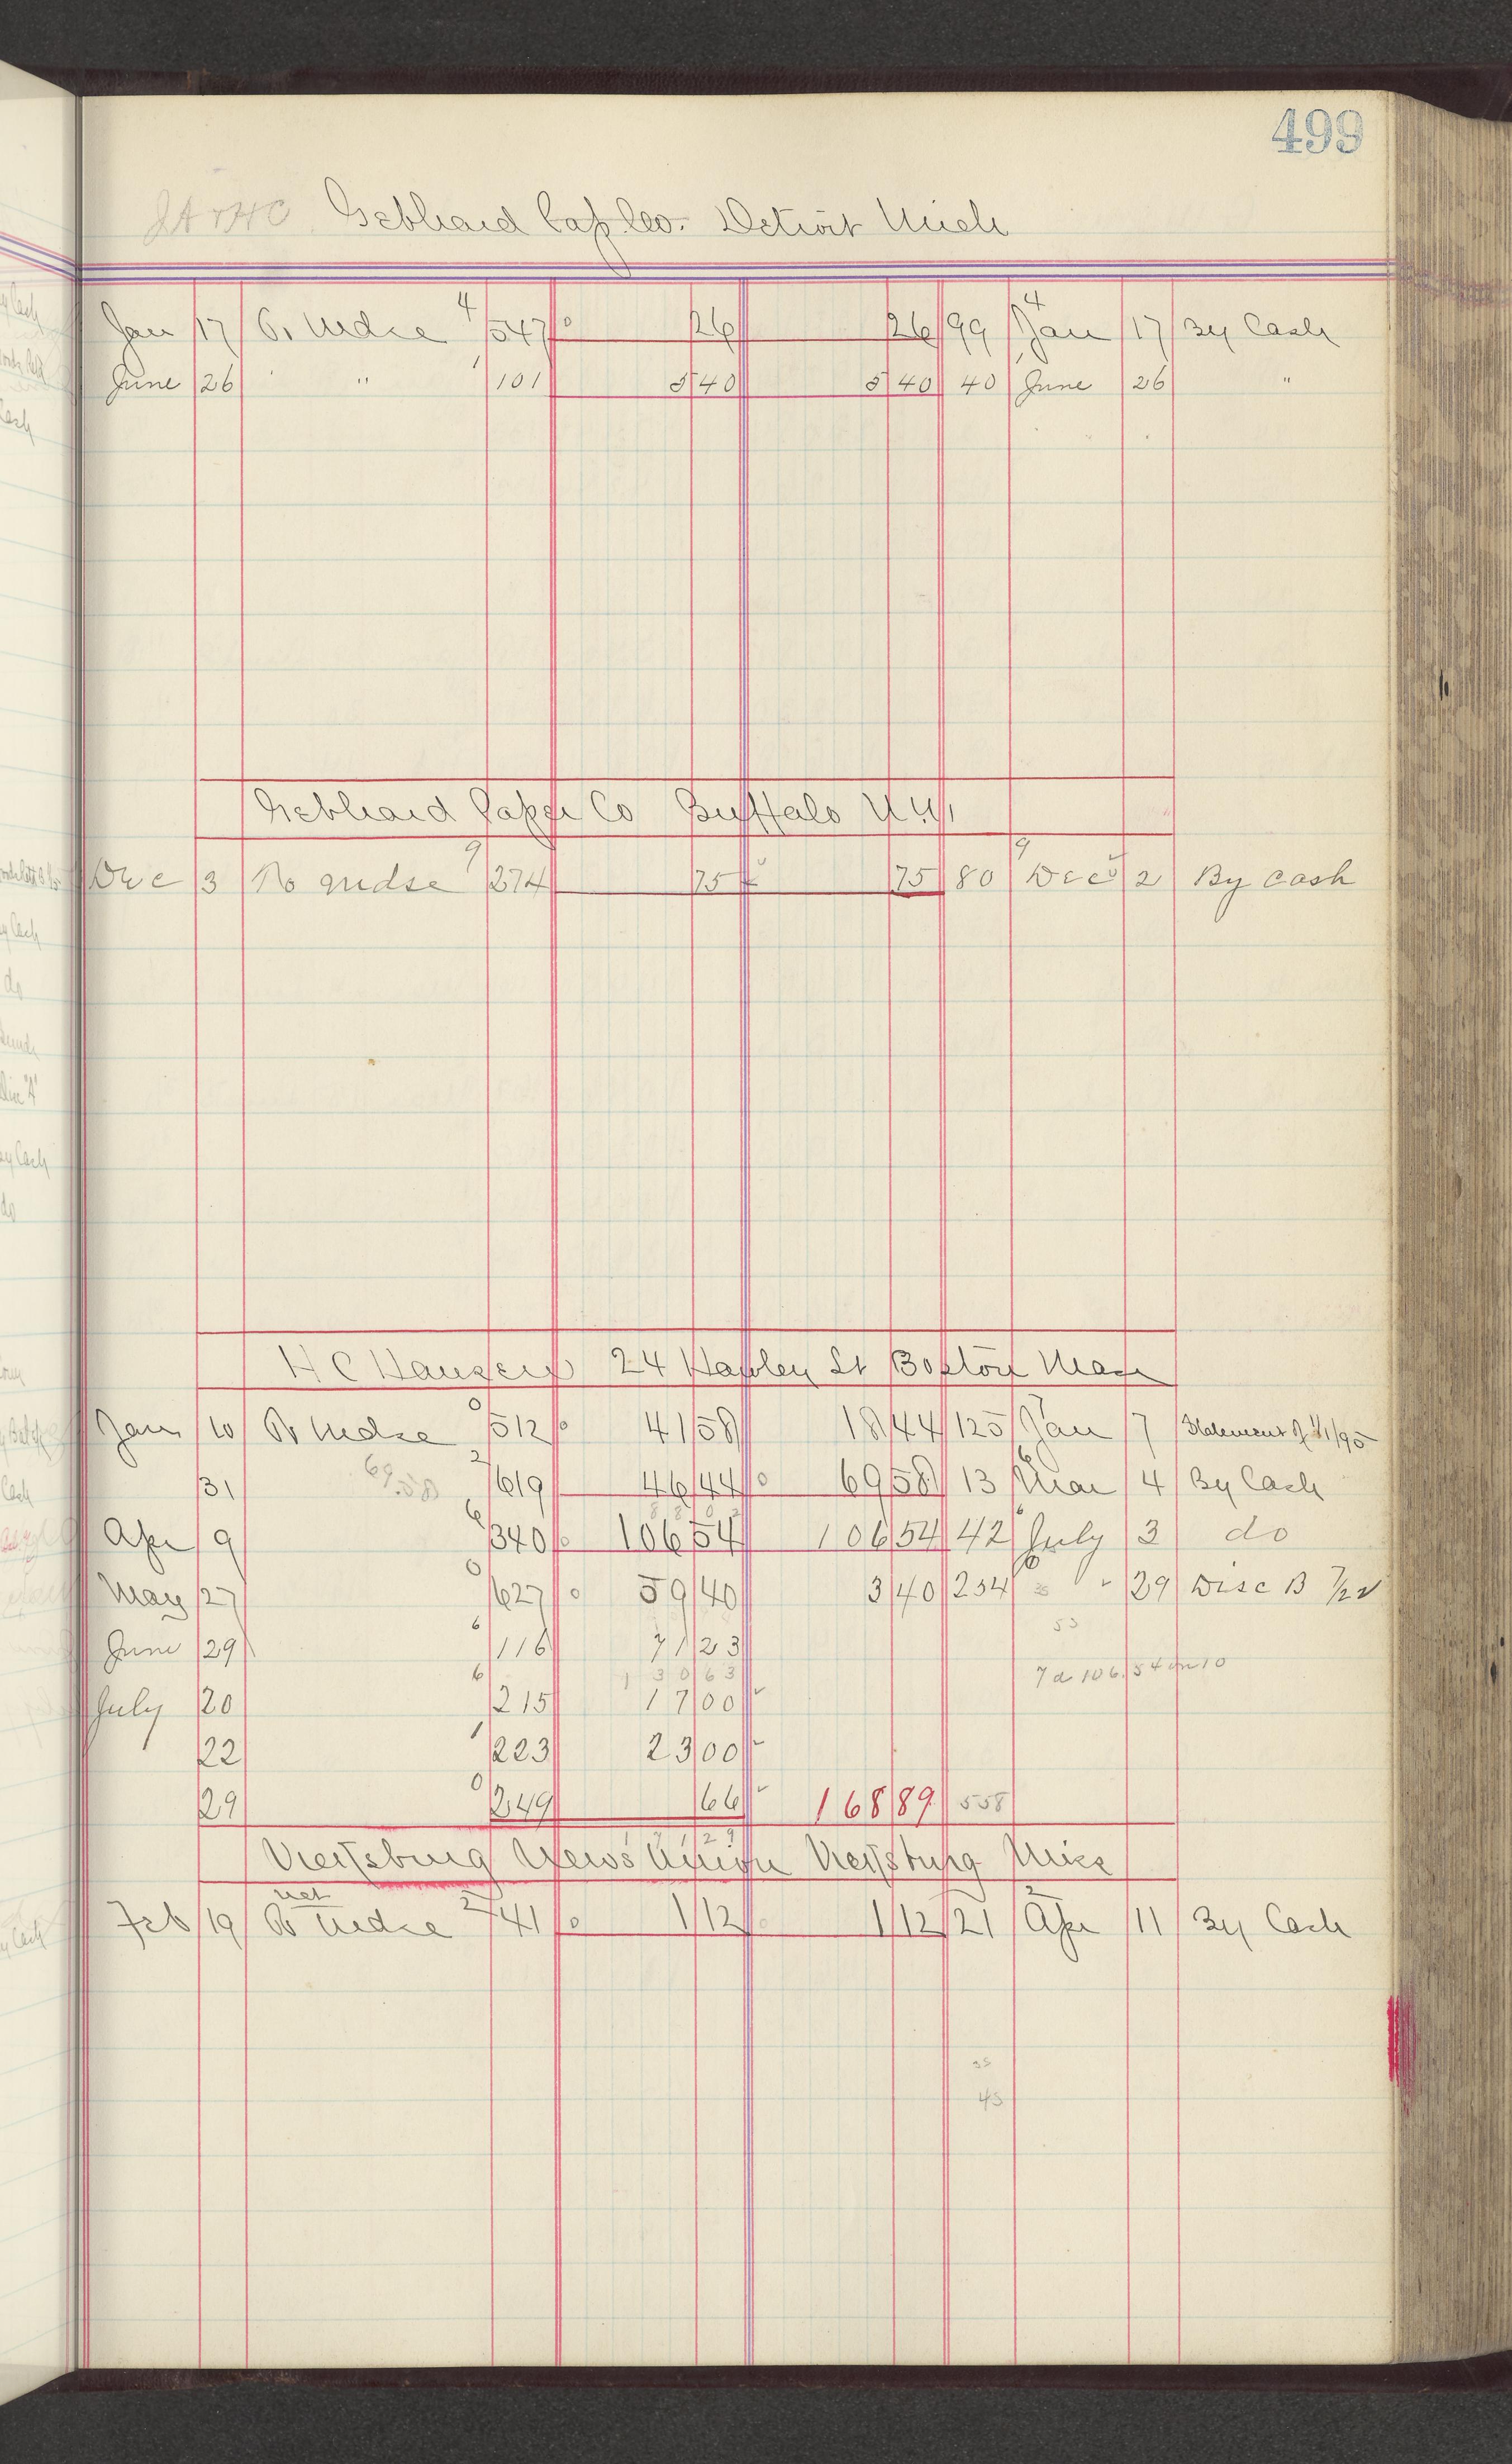 499
Gebhard Pap. Co. Detroit Mich
Jan 17 To Mdse 4 547 26 26 99 4 Jan 17 By Cash
June 26 " " 1 101 5 40 5 40 40 1 June 26 "
Gebhard Paper Co Buffalo N.Y.
Dec 3 To mdse 9 274 75 75 80 9 Dec 2 By cash
H C Hansen 24 Hawley St Boston Mass
Jan 10 To Mdse 0 512 41 58 18 44 125 Jan 7 Statement of 1/1/95
69.58
31 2 619 46 44 69 58 13 6 Mar 4 By Cash
88 02
Apr 9 6 340 106 54 106 54 42 6 July 3 do
May 27 0 627 59 40 3 40 234 " 29 Disc B 7/22
53
June 29 6 116 71 23
130 63 7 a 106.54 on 10
July 20 6 215 17 00
22 1 223 23 00
29 0 249 66 168 89 558
171 29
Vicksburg News Union Vicksburg Miss
net
Feb 19 To Mdse 2 41 1 12 1 12 21 2 Apr 11 By Cash
35
45